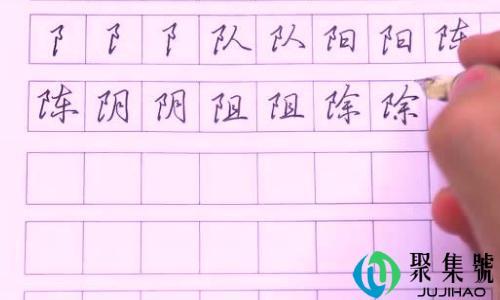 阝阝阝队队阳阳陈
陈阴阴阻阻除除
聚集號
JUJIHAO